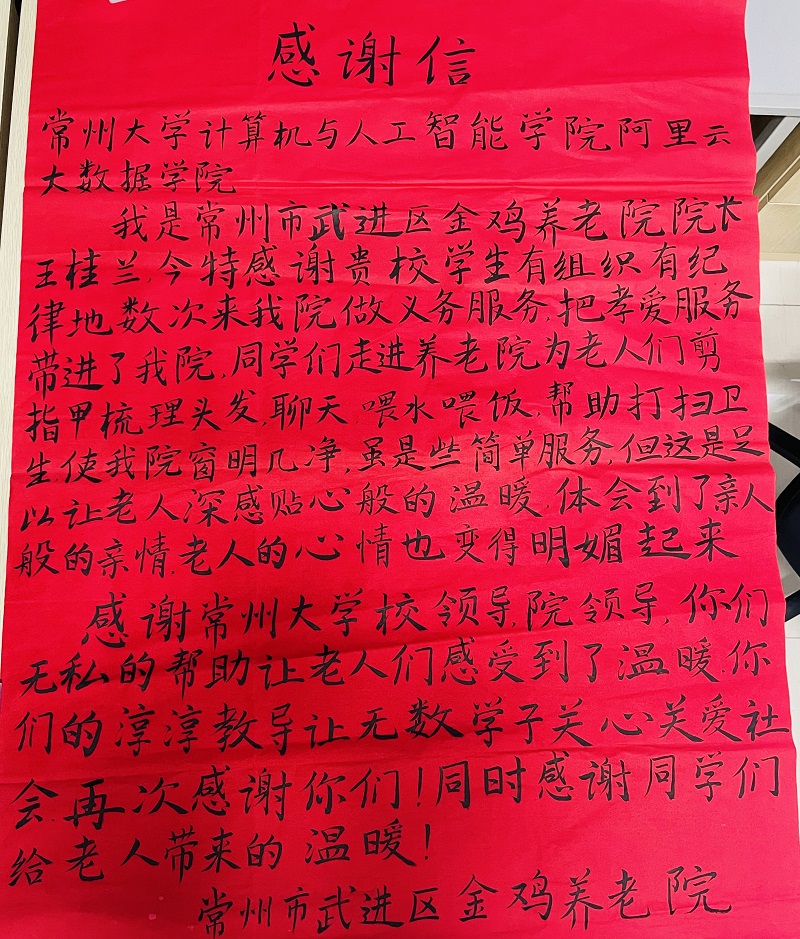 感谢信
常州大学计算机与人工智能学院阿里云
大数据学院
我是常州市武进区金鸡养老院院长
王桂兰,今特感谢贵校学生有组织有纪
律地数次来我院做义务服务.把孝爱服务
带进了我院.同学们走进养老院为老人们剪
指甲梳理头发,聊天.喂水喂饭.帮助打扫卫
生使我院窗明几净,虽是些简单服务,但这是足
以让老人深感贴心般的温暖.体会到了亲人
般的亲情.老人的心情也变得明媚起来
感谢常州大学校领导,院领导,你们
无私的帮助让老人们感受到了温暖.你
们的淳淳教导让无数学子关心关爱社
会.再次感谢你们!同时感谢同学们
给老人带来的温暖!
常州市武进区金鸡养老院